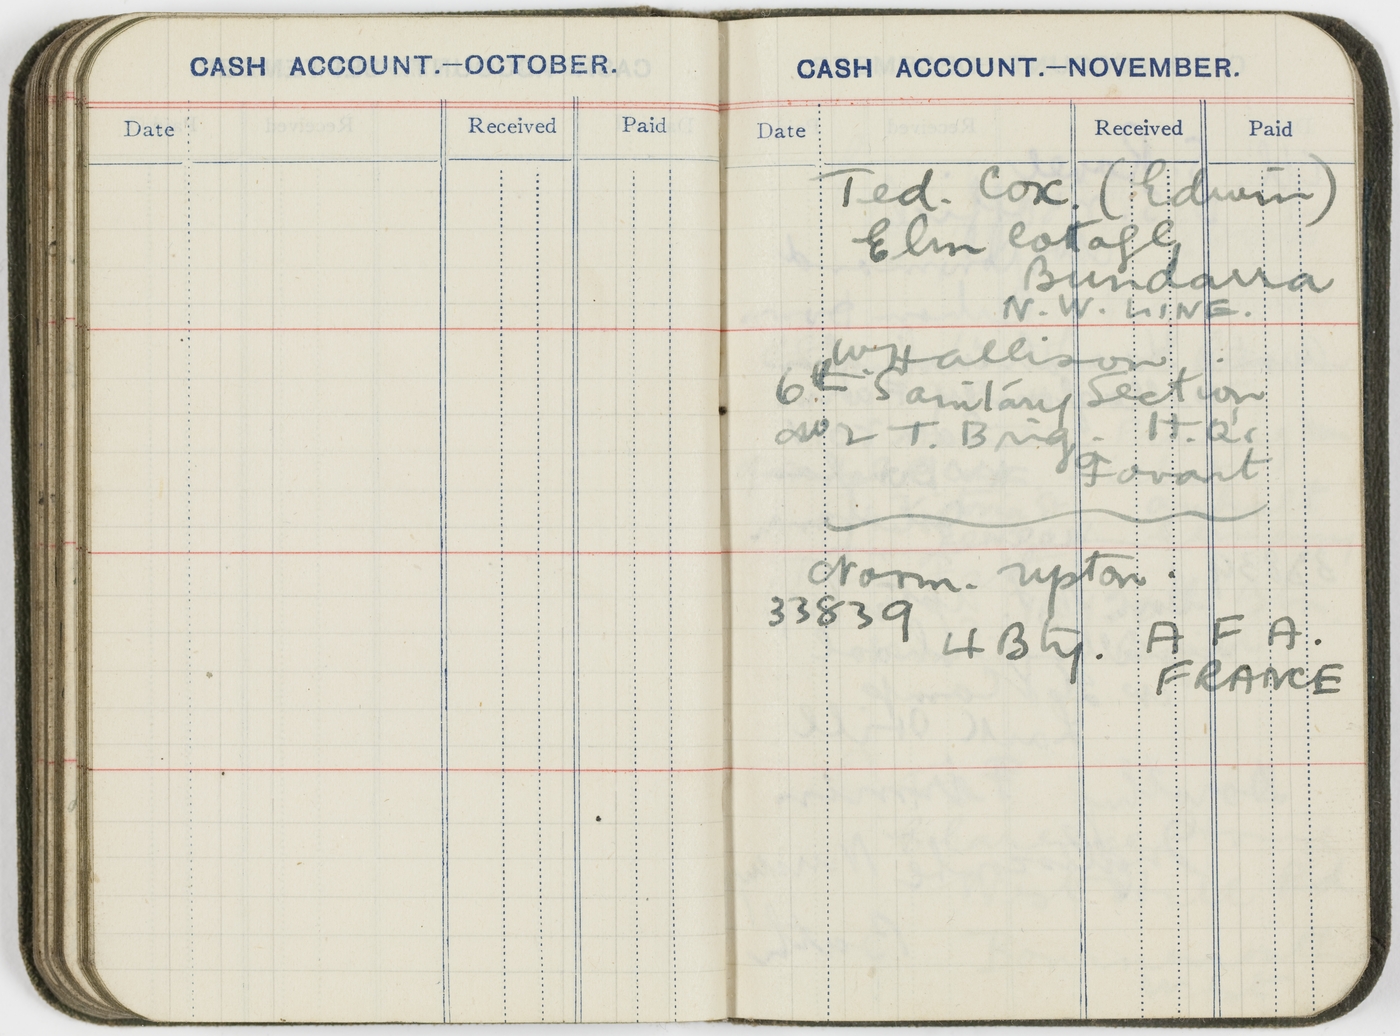 CASH ACCOUNT.—OCTOBER.
Date Received Paid
CASH ACCOUNT.—NOVEMBER.
Date Received Paid
Ted. Cox. (Edwin)
Elm Cotage
Bundarra
N.W. LINE.
W. Hallison
6th Sanitary Section
2 T. Brig. H.Q.
Fovart
Norm. Upton.
33839
4 Bty. A F A.
FRANCE